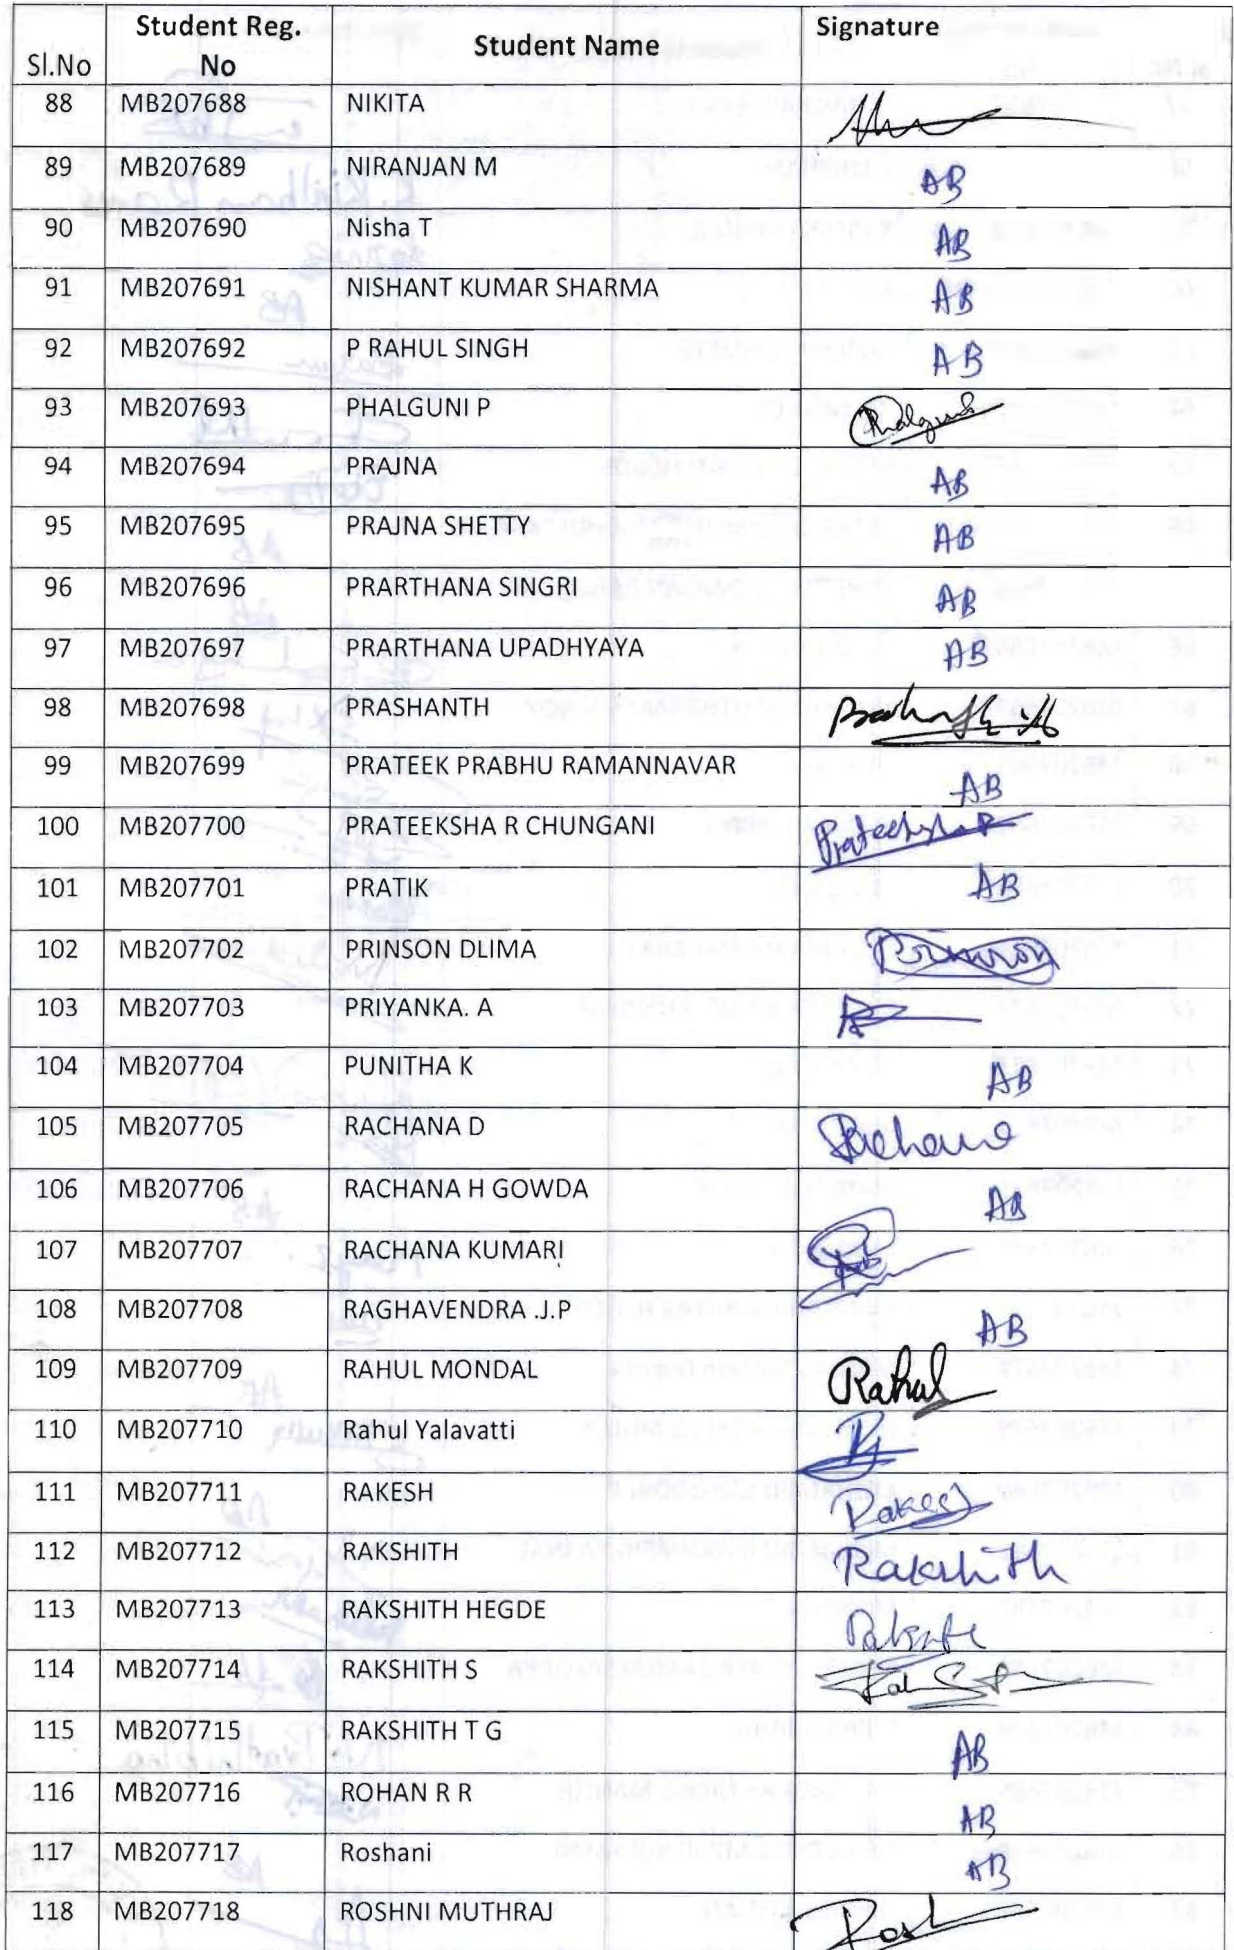 Sl.No Student Reg. No Student Name Signature
88 MB207688 NIKITA
89 MB207689 NIRANJAN M AB
90 MB207690 Nisha T AB
91 MB207691 NISHANT KUMAR SHARMA AB
92 MB207692 P RAHUL SINGH AB
93 MB207693 PHALGUNI P
94 MB207694 PRAJNA AB
95 MB207695 PRAJNA SHETTY AB
96 MB207696 PRARTHANA SINGRI AB
97 MB207697 PRARTHANA UPADHYAYA AB
98 MB207698 PRASHANTH
99 MB207699 PRATEEK PRABHU RAMANNAVAR AB
100 MB207700 PRATEEKSHA R CHUNGANI
101 MB207701 PRATIK AB
102 MB207702 PRINSON DLIMA Prinson
103 MB207703 PRIYANKA. A
104 MB207704 PUNITHA K AB
105 MB207705 RACHANA D
106 MB207706 RACHANA H GOWDA AB
107 MB207707 RACHANA KUMARI
108 MB207708 RAGHAVENDRA .J.P AB
109 MB207709 RAHUL MONDAL Rahul
110 MB207710 Rahul Yalavatti
111 MB207711 RAKESH Rakesh
112 MB207712 RAKSHITH Rakshith
113 MB207713 RAKSHITH HEGDE
114 MB207714 RAKSHITH S
115 MB207715 RAKSHITH T G AB
116 MB207716 ROHAN R R AB
117 MB207717 Roshani AB
118 MB207718 ROSHNI MUTHRAJ